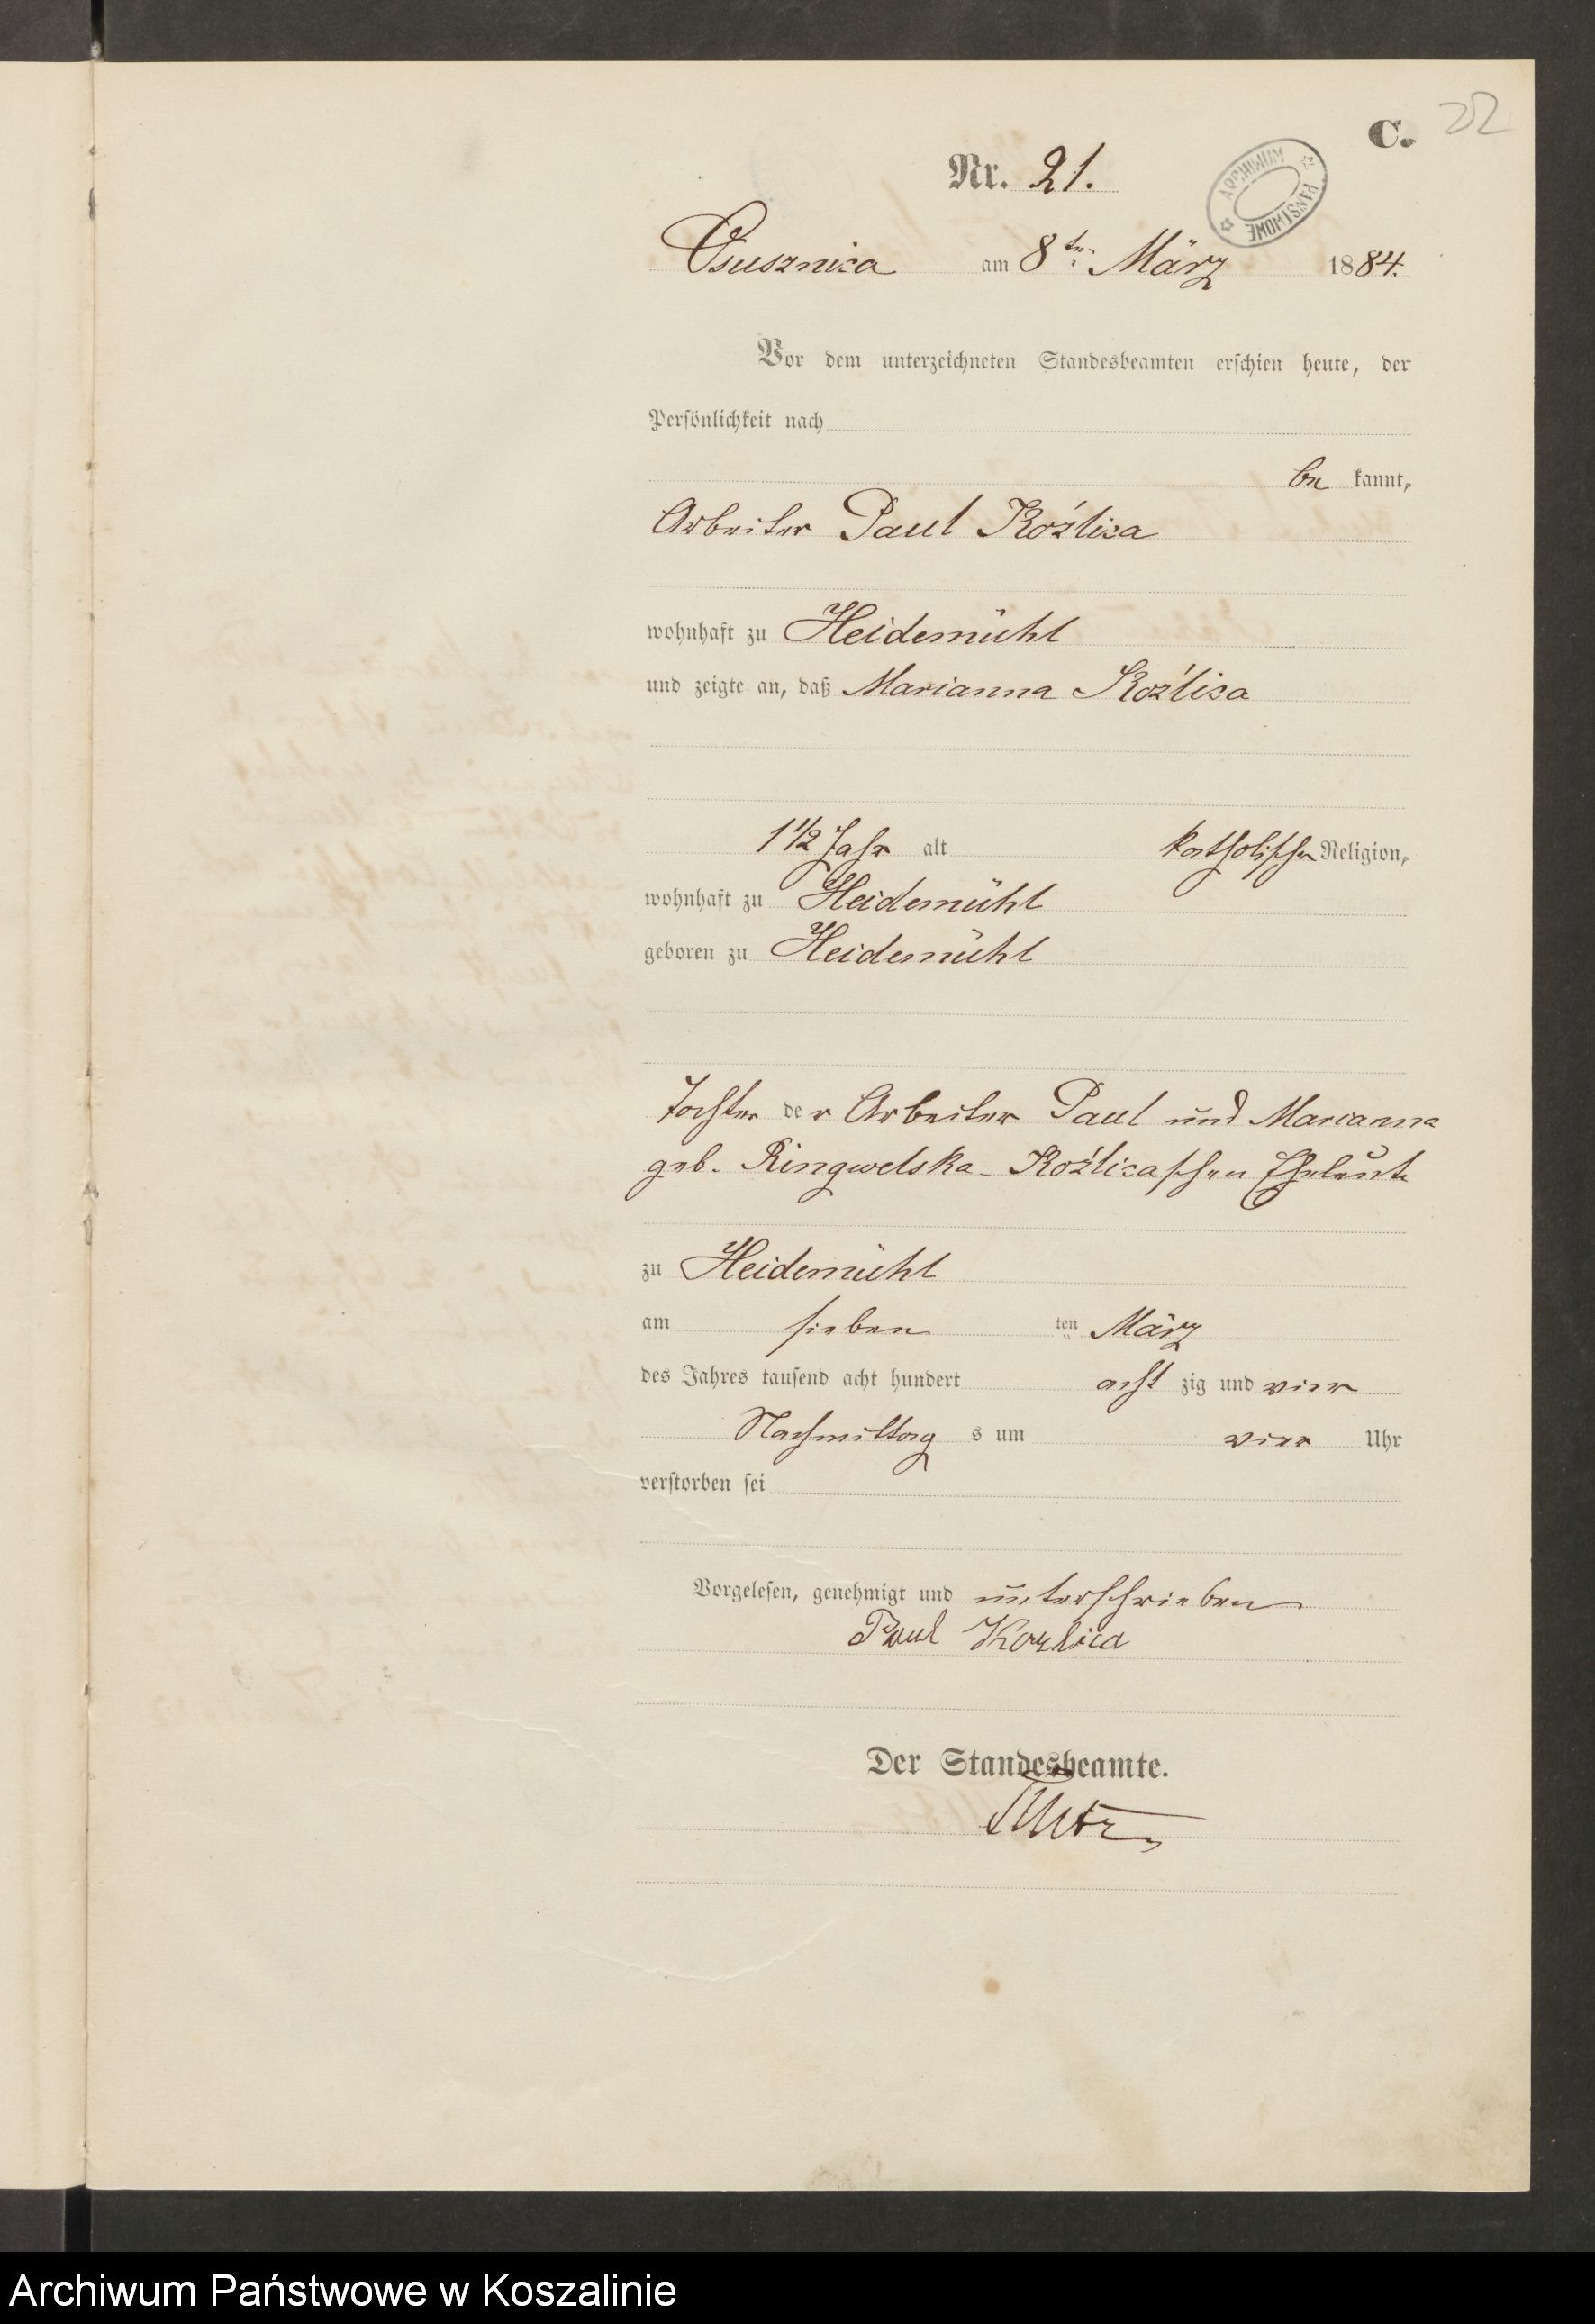 C. 22
Nr. 21.
ARCHIWUM PAŃSTWOWE
Osusznica am 8ten März 1884.
Vor dem unterzeichneten Standesbeamten erschien heute, der
Persönlichkeit nach
be kannt,
Arbeiter Paul Koźlica
wohnhaft zu Heidemühl
und zeigte an, daß Marianna Koźlica
1 1/2 Jahr alt katholischer Religion,
wohnhaft zu Heidemühl
geboren zu Heidemühl
Tochter der Arbeiter Paul und Marianna
geb. Ringwelska-Koźlicaschen Eheleute
zu Heidemühl
am sieben ten März
des Jahres tausend acht hundert acht zig und vier
Nachmittag s um vier Uhr
verstorben sei
Vorgelesen, genehmigt und unterschrieben
Paul Kozlica
Der Standesbeamte.
Archiwum Państwowe w Koszalinie